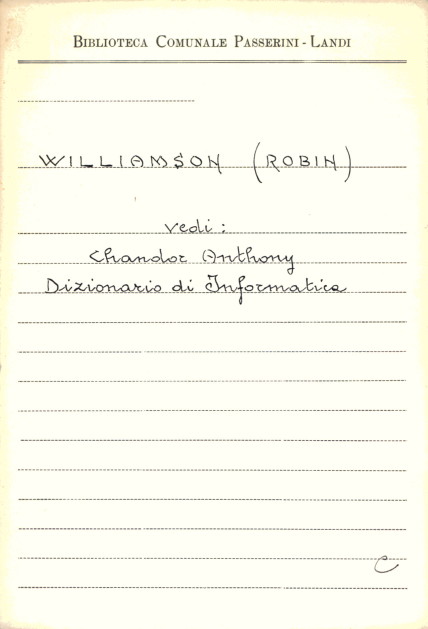 BIBLIOTECA COMUNALE PASSERINI - LANDI
WILLIAMSON (ROBIN)
vedi :
Chandor Anthony
Dizionario di Informatica
C